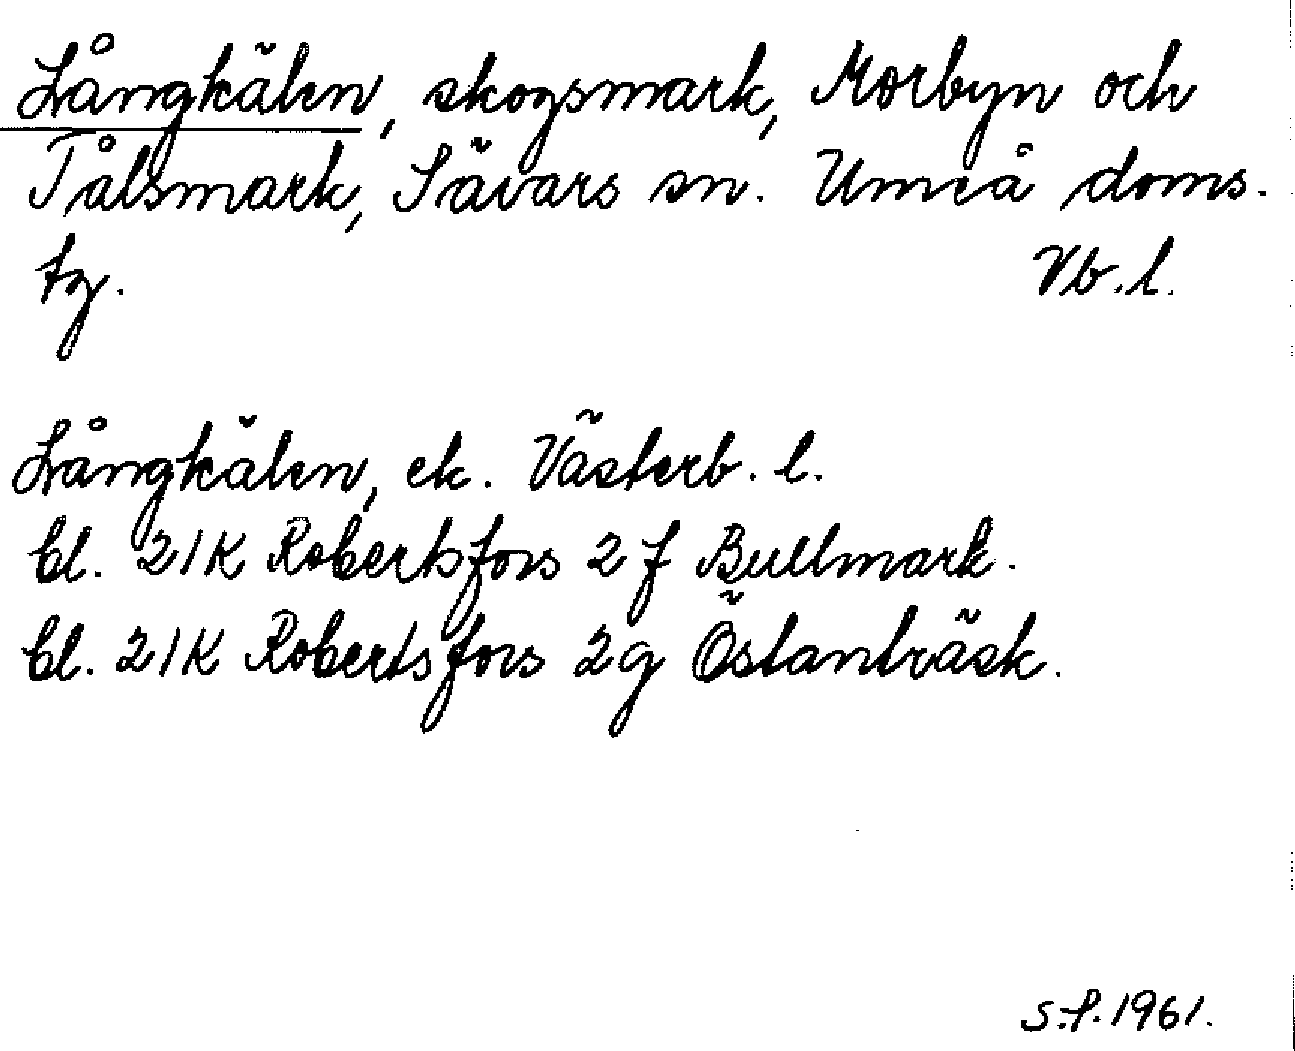 Långkälen, skogsmark, Morbyn och
Tålsmark, Sävars sn. Umeå doms.
tg. Vb.l.
Långkälen, ek. Västerb. l.
bl. 21K Robertsfors 2f Bullmark.
bl. 21K Robertsfors 2g Östanträsk.
S.f. 1961.